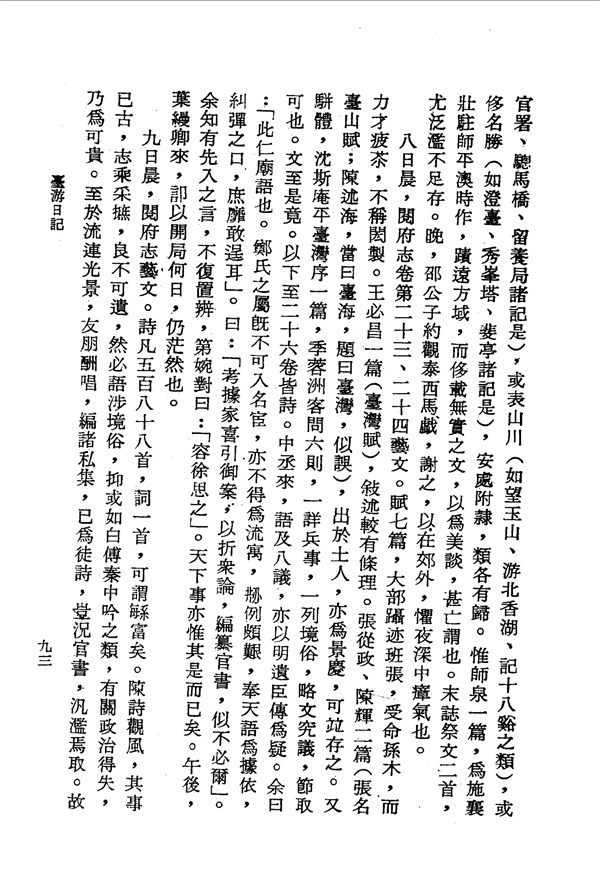 官署、驄馬橋、留養局諸記是），或表山川（如望玉山、游北香湖、記十八谿之類），或
侈名勝（如澄臺、秀峯塔、斐亭諸記是），安處附隸，類各有歸。惟師泉一篇，爲施襄
壯駐師平澳時作，蹟遠方域，而侈戴無實之文，以爲美談，甚亡謂也。末誌祭文二首，
尤泛濫不足存。晚，邵公子約觀泰西馬戲，謝之，以在郊外，懼夜深中瘴氣也。
八日晨，閱府志卷第二十三、二十四藝文。賦七篇，大部躡迹班張，受命孫木，而
力才疲苶，不稱閎製。王必昌一篇（臺灣賦），敍述較有條理。張從政、陳輝二篇（張名
臺山賦；陳述海，當曰臺海，題曰臺灣，似誤），出於土人，亦爲景慶，可竝存之。又
駢體，沈斯庵平臺灣序一篇，季蓉洲客問六則，一詳兵事，一列境俗，略文究議，節取
可也。文至是竟。以下至二十六卷皆詩。中丞來，語及八議，亦以明遺臣傳爲疑。余曰
：「此仁廟語也。鄭氏之屬旣不可入名宦，亦不得爲流寓，刱例頗艱，奉天語爲據依，
糾彈之口，庶靡敢逞耳」。曰：「考據家喜引御案，以折衆論，編纂官書，似不必爾」。
余知有先入之言，不復置辨，第婉對曰：「容徐思之」。天下事亦惟其是而已矣。午後，
葉縵卿來，訠以開局何日，仍茫然也。
九日晨，閱府志藝文。詩凡五百八十八首，詞一首，可謂緐富矣。陳詩觀風，其事
已古，志乘采摭，良不可遺，然必語涉境俗，抑或如白傅秦中吟之類，有關政治得失，
乃爲可貴。至於流連光景，友朋酬唱，編諸私集，已爲徒詩，豈況官書，汎濫焉取。故
臺游日記
九三